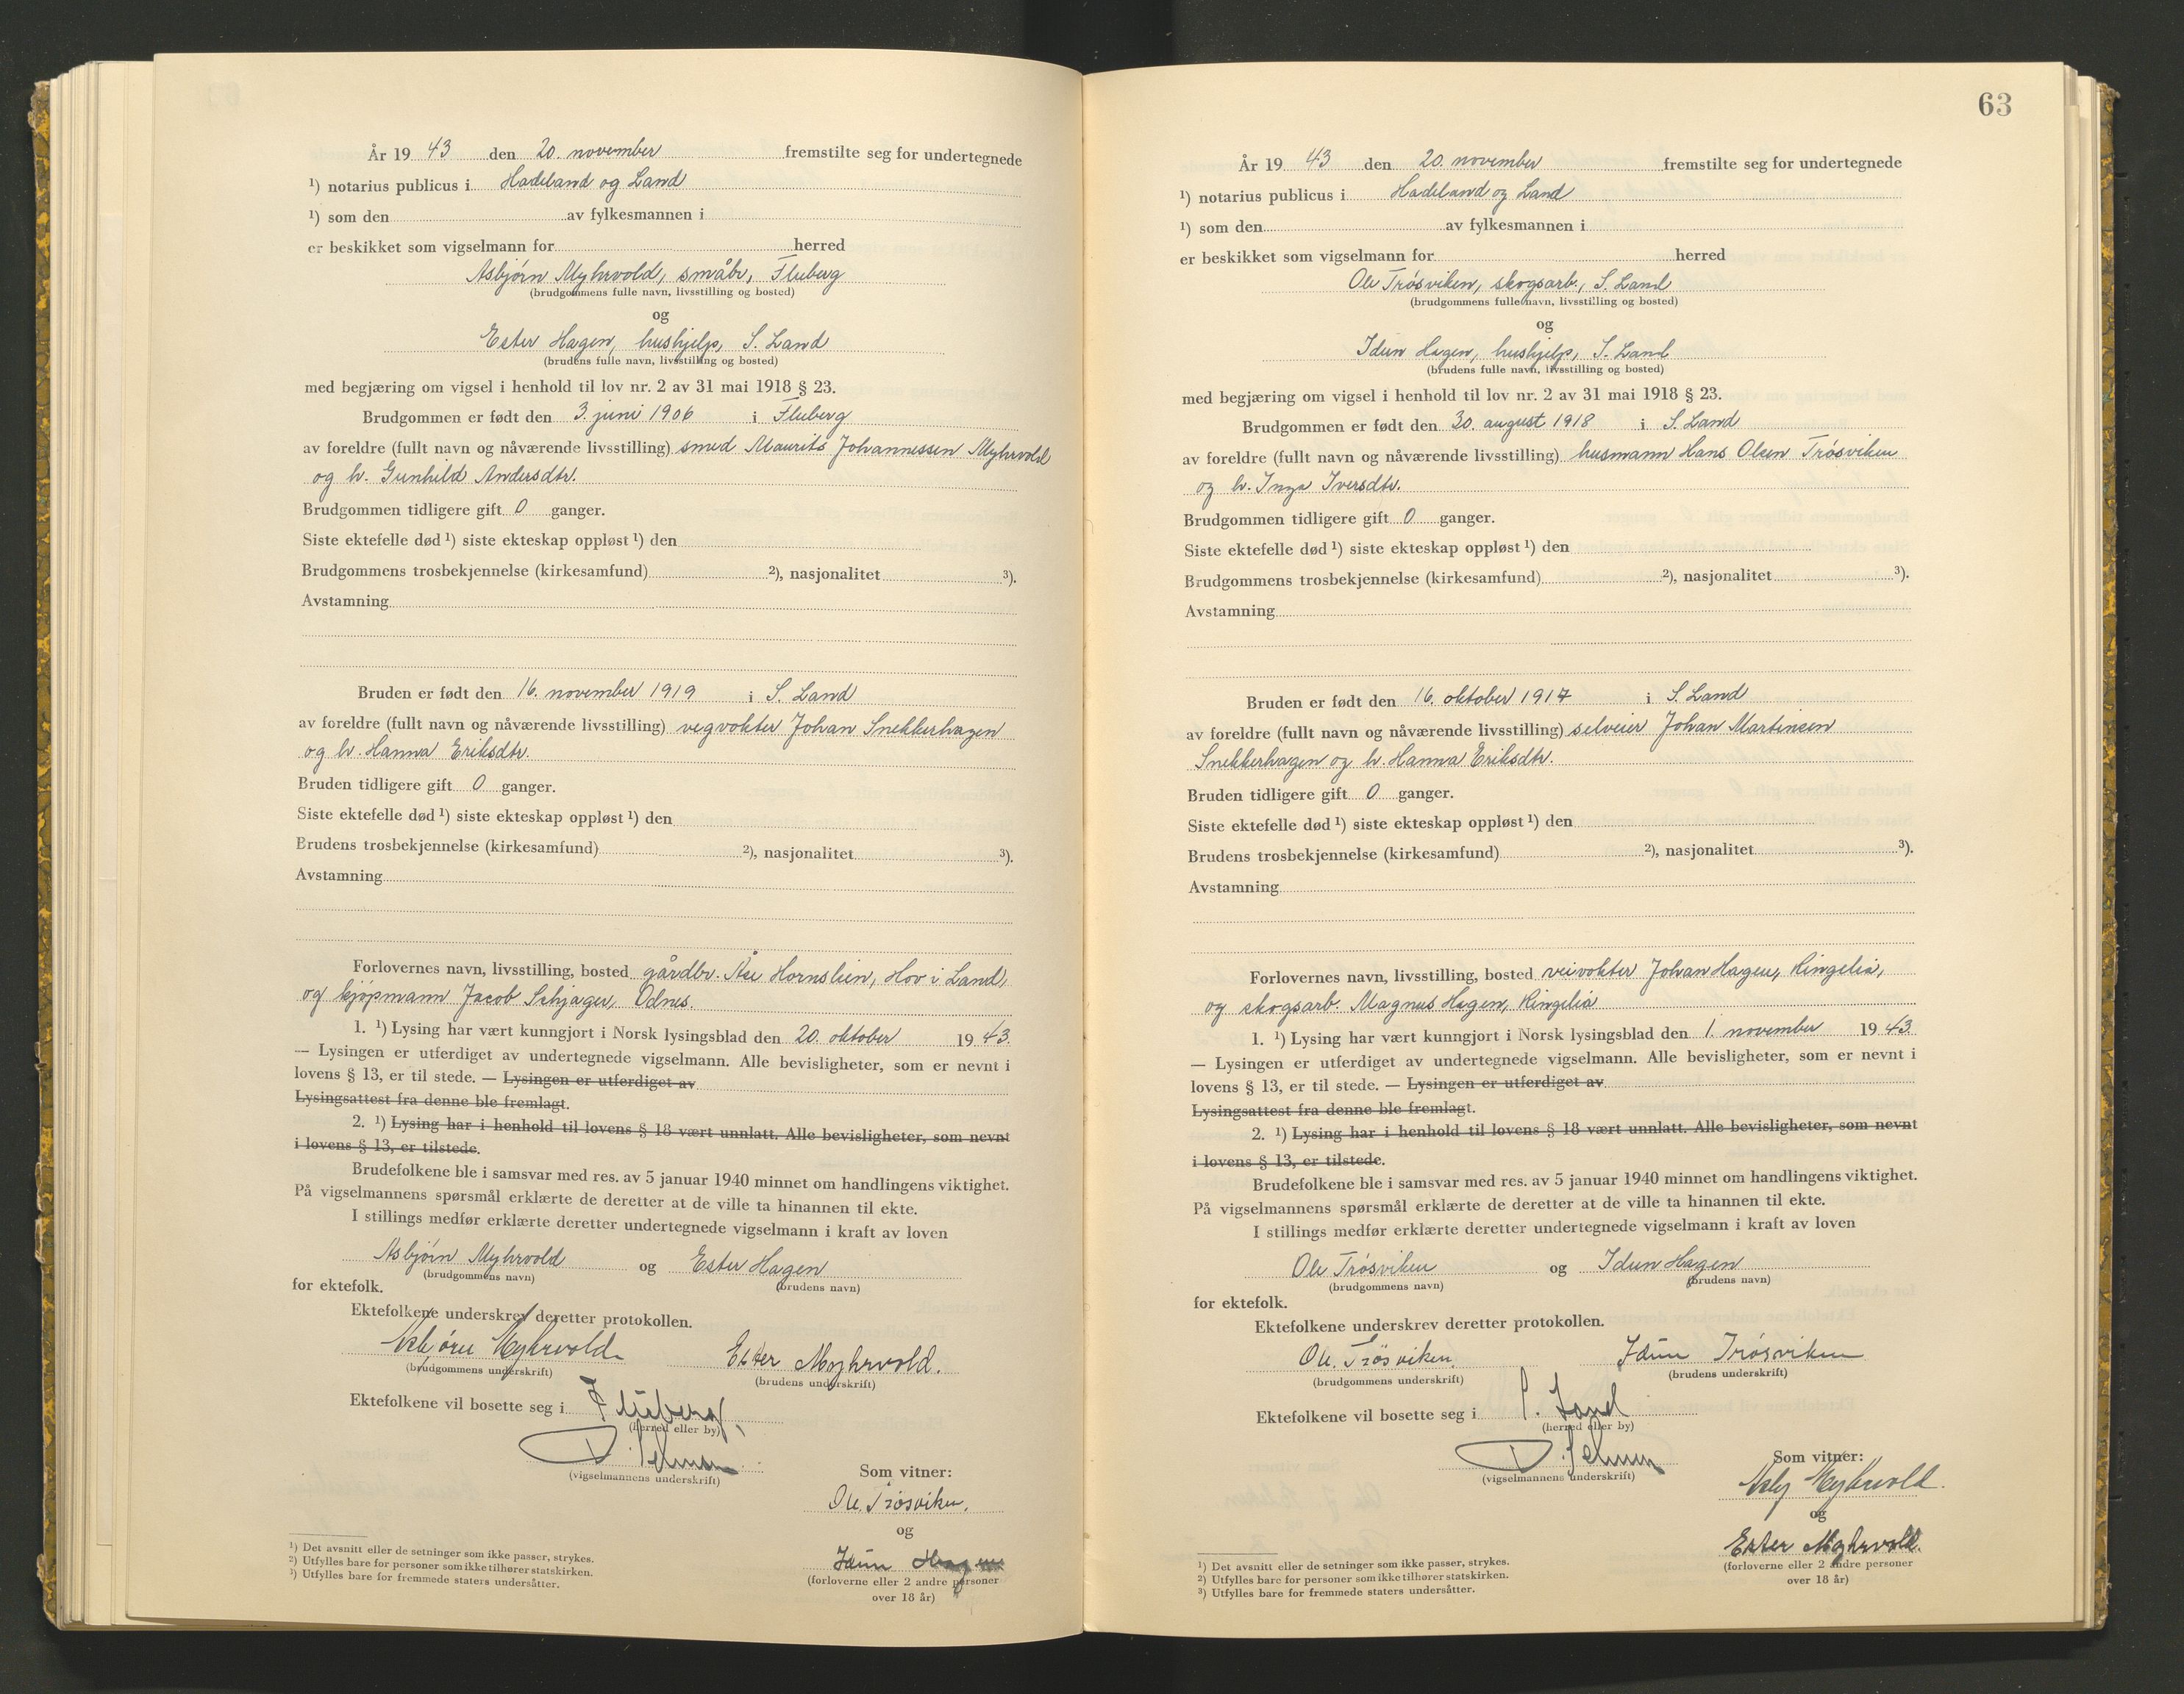 År 19 43 den 20. november fremstilte seg for undertegnede
¹) notarius publicus i Hadeland og Land
¹) som den av fylkesmannen i
er beskikket som vigselmann for herred
Asbjørn Myhrvold, småbr, Fluberg
(brudgommens fulle navn, livsstilling og bosted)
og
Ester Hagen, hushjelp, S. Land
(brudens fulle navn, livsstilling og bosted)
med begjæring om vigsel i henhold til lov nr. 2 av 31 mai 1918 § 23.
Brudgommen er født den 3. juni 1906 i Fluberg
av foreldre (fullt navn og nåværende livsstilling) smed Maurits Johannessen Myhrvold
og h. Gunhild Andersdtr.
Brudgommen tidligere gift 0 ganger.
Siste ektefelle død ¹) siste ekteskap oppløst ¹) den
Brudgommens trosbekjennelse (kirkesamfund) ²), nasjonalitet ³).
Avstamning
Bruden er født den 16. november 1919 i S. Land
av foreldre (fullt navn og nåværende livsstilling) vegvokter Johan Snekkerhagen
og h. Hanna Eriksdtr.
Bruden tidligere gift 0 ganger.
Siste ektefelle død ¹) siste ekteskap oppløst ¹) den
Brudens trosbekjennelse (kirkesamfund) ²), nasjonalitet ³).
Avstamning
Forlovernes navn, livsstilling, bosted gårdbr. Åse Hornslien, Hov i Land,
og kjøpmann Jacob Schjager, Odnes.
1. ¹) Lysing har vært kunngjort i Norsk lysingsblad den 20. oktober 19 43.
— Lysingen er utferdiget av undertegnede vigselmann. Alle bevisligheter, som er nevnt i
lovens § 13, er til stede. — Lysingen er utferdiget av
Lysingsattest fra denne ble fremlagt.
2. ¹) Lysing har i henhold til lovens § 18 vært unnlatt. Alle bevisligheter, som nevnt
i lovens § 13, er tilstede.
Brudefolkene ble i samsvar med res. av 5 januar 1940 minnet om handlingens viktighet.
På vigselmannens spørsmål erklærte de deretter at de ville ta hinannen til ekte.
I stillings medfør erklærte deretter undertegnede vigselmann i kraft av loven
Asbjørn Myhrvold og Ester Hagen
(brudgommens navn) (brudens navn)
for ektefolk.
Ektefolkene underskrev deretter protokollen.
Asbjørn Myhrvold Ester Myhrvold.
(brudgommens underskrift) (brudens underskrift)
Ektefolkene vil bosette seg i Fluberg,
(herred eller by)
(vigselmannens underskrift)
Som vitner:
Ole Trøsviken,
og
Idun Hagen
(forloverne eller 2 andre personer
over 18 år)
¹) Det avsnitt eller de setninger som ikke passer, strykes.
²) Utfylles bare for personer som ikke tilhører statskirken.
³) Utfylles bare for fremmede staters undersåtter.
63
År 19 43 den 20. november fremstilte seg for undertegnede
¹) notarius publicus i Hadeland og Land
¹) som den av fylkesmannen i
er beskikket som vigselmann for herred
Ole Trøsviken, skogsarb., S. Land
(brudgommens fulle navn, livsstilling og bosted)
og
Idun Hagen, hushjelp, S. Land
(brudens fulle navn, livsstilling og bosted)
med begjæring om vigsel i henhold til lov nr. 2 av 31 mai 1918 § 23.
Brudgommen er født den 30. august 1918 i S. Land
av foreldre (fullt navn og nåværende livsstilling) husmann Hans Olsen Trøsviken
og h. Inga Iversdtr.
Brudgommen tidligere gift 0 ganger.
Siste ektefelle død ¹) siste ekteskap oppløst ¹) den
Brudgommens trosbekjennelse (kirkesamfund) ²), nasjonalitet ³).
Avstamning
Bruden er født den 16. oktober 1917 i S. Land
av foreldre (fullt navn og nåværende livsstilling) selveier Johan Martinsen
Snekkerhagen og h. Hanna Eriksdtr.
Bruden tidligere gift 0 ganger.
Siste ektefelle død ¹) siste ekteskap oppløst ¹) den
Brudens trosbekjennelse (kirkesamfund) ²), nasjonalitet ³).
Avstamning
Forlovernes navn, livsstilling, bosted veivokter Johan Hagen, Ringelia,
og skogsarb. Magnus Hagen, Ringelia
1. ¹) Lysing har vært kunngjort i Norsk lysingsblad den 1. november 19 43
— Lysingen er utferdiget av undertegnede vigselmann. Alle bevisligheter, som er nevnt i
lovens § 13, er til stede. — Lysingen er utferdiget av
Lysingsattest fra denne ble fremlagt.
2. ¹) Lysing har i henhold til lovens § 18 vært unnlatt. Alle bevisligheter, som nevnt
i lovens § 13, er tilstede.
Brudefolkene ble i samsvar med res. av 5 januar 1940 minnet om handlingens viktighet.
På vigselmannens spørsmål erklærte de deretter at de ville ta hinannen til ekte.
I stillings medfør erklærte deretter undertegnede vigselmann i kraft av loven
Ole Trøsviken og Idun Hagen
(brudgommens navn) (brudens navn)
for ektefolk.
Ektefolkene underskrev deretter protokollen.
Ole Trøsviken. Idun Trøsviken
(brudgommens underskrift) (brudens underskrift)
Ektefolkene vil bosette seg i S. Land
(herred eller by)
(vigselmannens underskrift)
Som vitner:
Asbj Myhrvold.
og
Ester Myhrvold.
(forloverne eller 2 andre personer
over 18 år)
¹) Det avsnitt eller de setninger som ikke passer, strykes.
²) Utfylles bare for personer som ikke tilhører statskirken.
³) Utfylles bare for fremmede staters undersåtter.